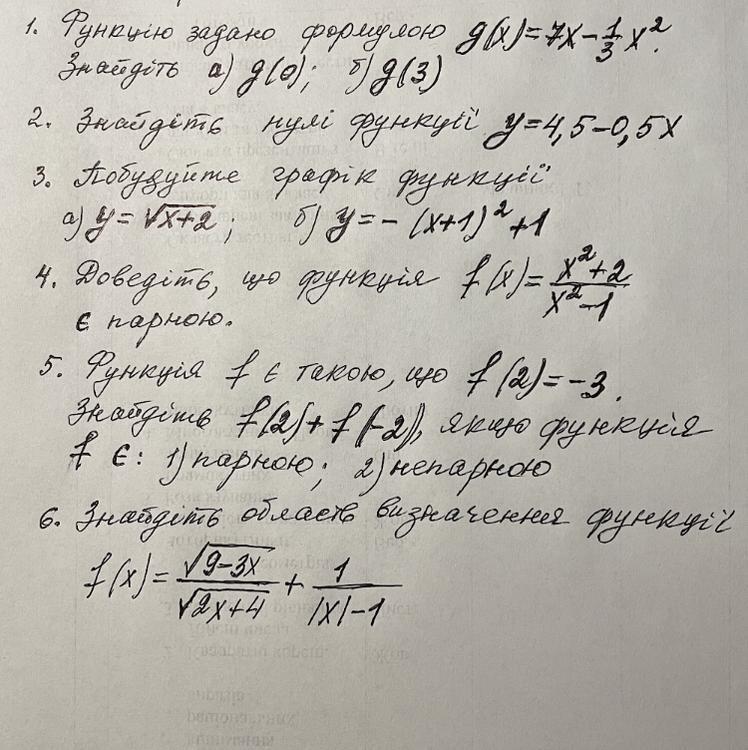 1. Функцію задано формулою g(x)=7x-1/3 x².
Знайдіть а) g(0); б) g(3)
2. Знайдіть нулі функції y=4,5-0,5x
3. Побудуйте графік функції
а) y=√x+2; б) y=-(x+1)²+1
4. Доведіть, що функція f(x)=x²+2/x²-1
є парною.
5. Функція f є такою, що f(2)=-3.
Знайдіть f(2)+f(-2), якщо функція
f є: 1) парною; 2) непарною
6. Знайдіть область визначення функції
f(x)=√9-3x/√2x+4 + 1/|x|-1